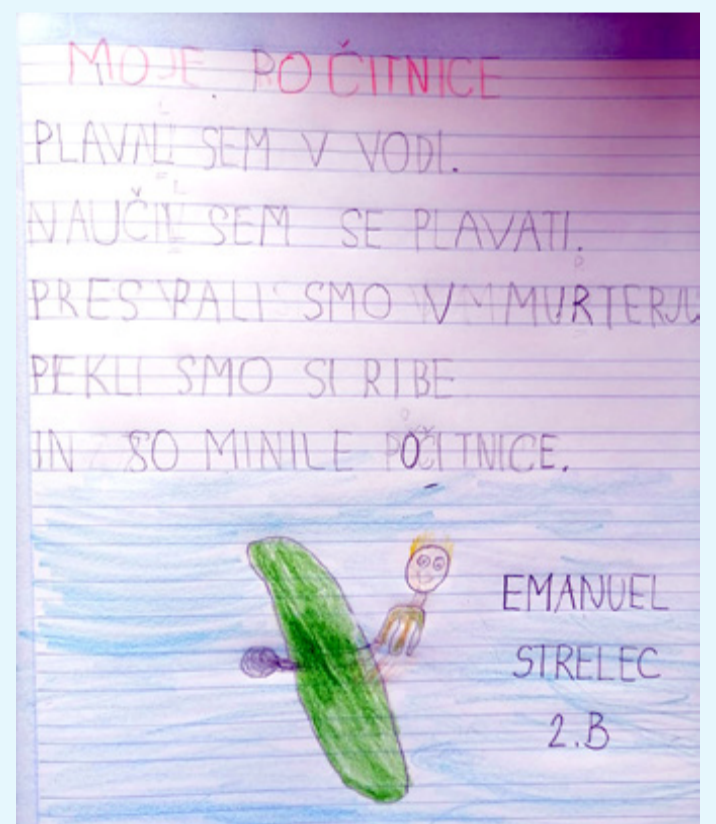 MOJE POČITNICE
PLAVAL SEM V VODI.
NAUČIL SEM SE PLAVATI.
PRESPALI SMO V MURTERJU
PEKLI SMO SI RIBE
IN SO MINILE POČITNICE.
EMANUEL
STRELEC
2.B